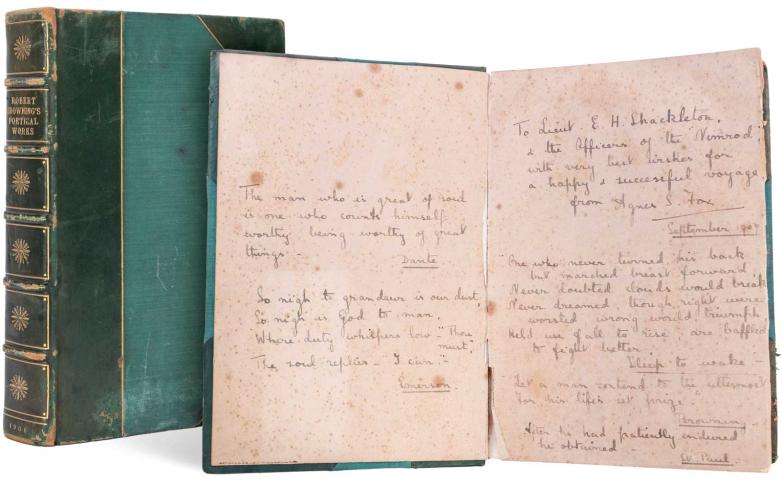 ROBERT
BROWNING'S
POETICAL
WORKS
1906
The man who is great of soul
is one who counts himself
worthy being worthy of great
things —
Dante
So nigh to grandeur is our dust,
So nigh is God to man,
Where duty whispers low "Thou
must,"
The soul replies — I can."
Emerson.
To Lieut. E. H. Shackleton,
& the Officers of the "Nimrod"
with very best wishes for
a happy & successful voyage
from Agnes S. Fox.
September 1907
"One who never turned his back
but marched breast forward
Never doubted clouds would break
Never dreamed, though right were
worsted wrong would triumph
Held we fall to rise, are baffled
to fight better.
Sleep to wake —
Let a man contend to the uttermost
For his life's set prize"
Browning —
After he had patiently endured
he obtained —
St. Paul.